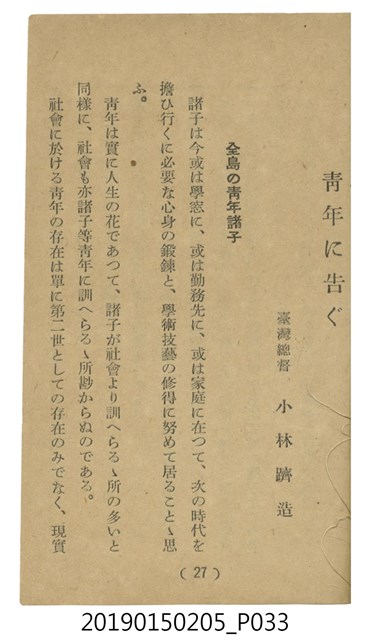 靑年に告ぐ
臺灣總督 小林躋造
全島の靑年諸子
諸子は今或は學窓に、或は勤務先に、或は家庭に在つて、次の時代を
擔ひ行くに必要な心身の鍛鍊と、學術技藝の修得に努めて居ることゝ思
ふ。
靑年は實に人生の花であつて、諸子が社會より訓へらるゝ所の多いと
同樣に、社會も亦諸子等靑年に訓へらるゝ所尠からぬのである。
社會に於ける靑年の存在は單に第二世としての存在のみでなく、現實
(27)
20190150205_P033